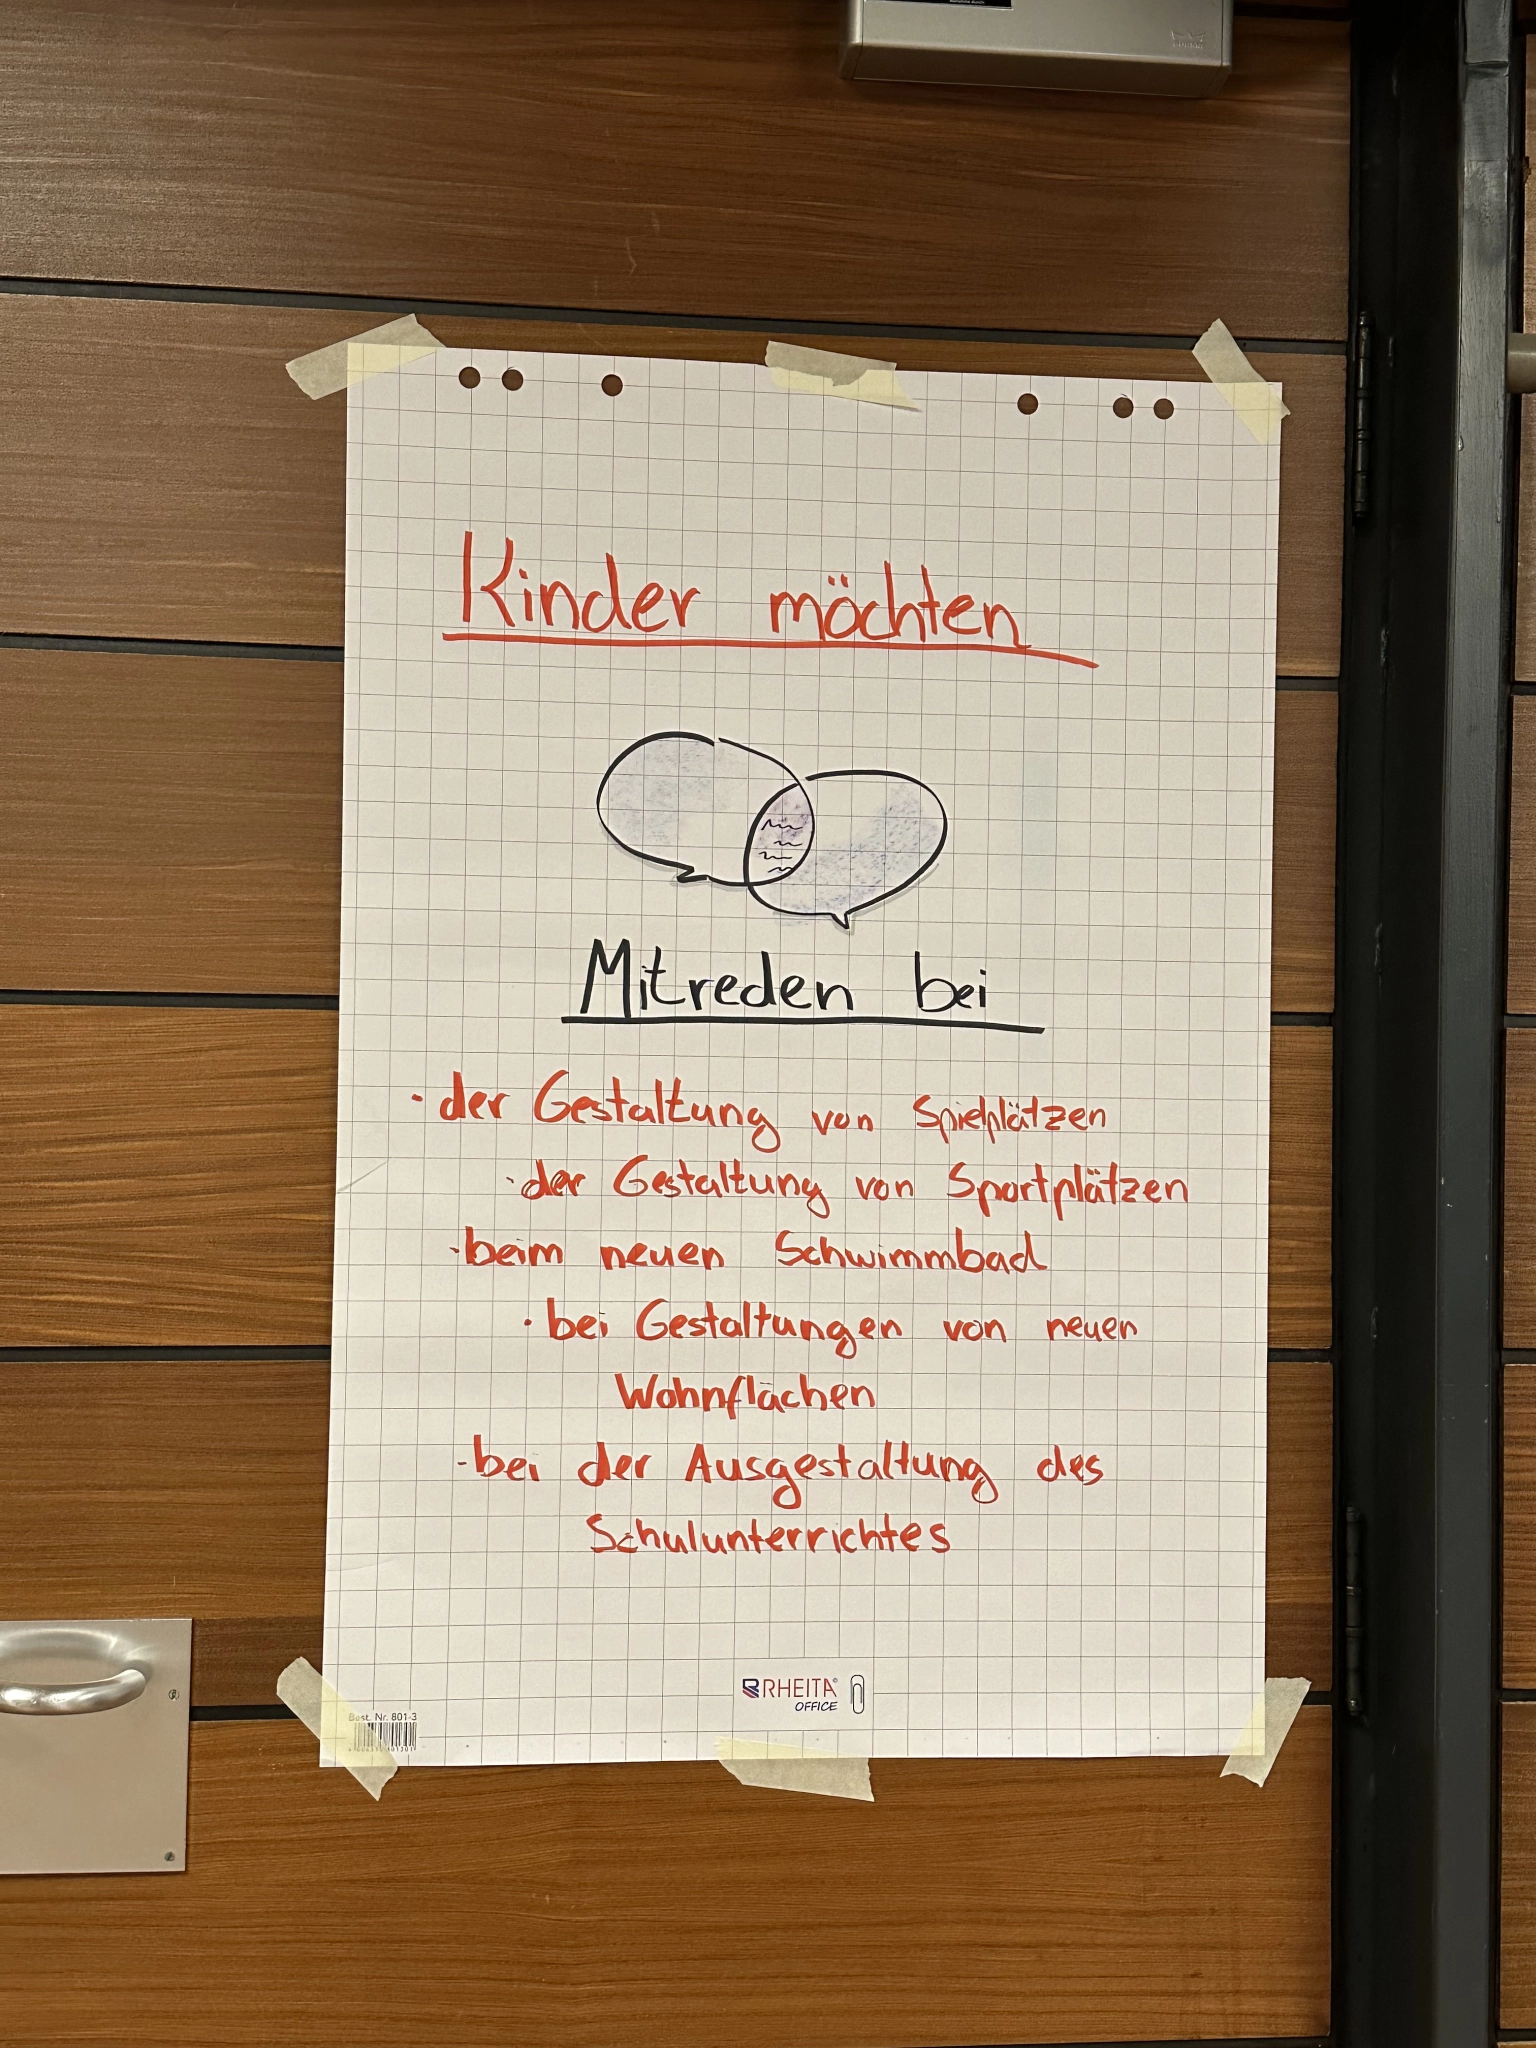 Kinder möchten
Mitreden bei
· der Gestaltung von Spielplätzen
· der Gestaltung von Sportplätzen
· beim neuen Schwimmbad
· bei Gestaltungen von neuen
Wohnflächen
- bei der Ausgestaltung des
Schulunterrichtes
RHEITA®
OFFICE
Best. Nr. 801-3